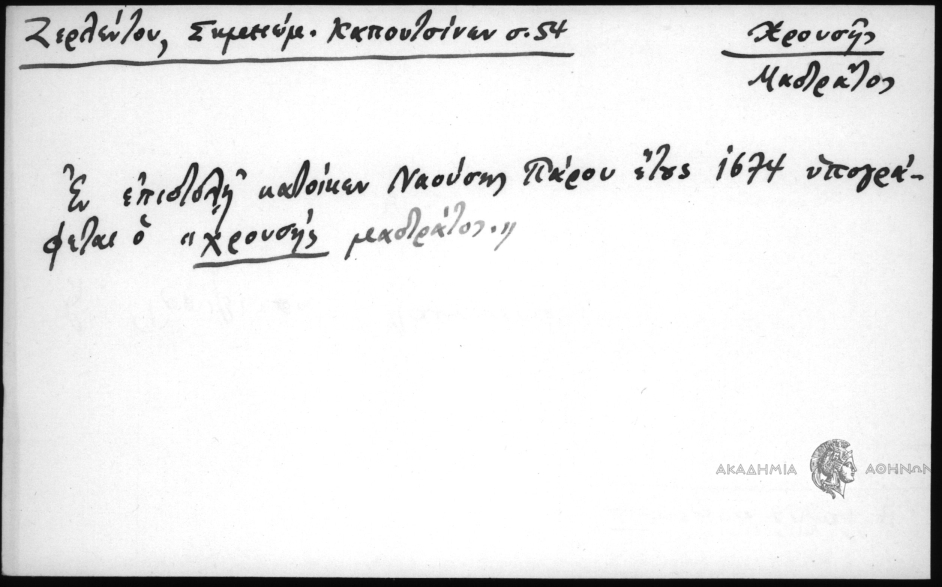 Ζερλέντου, Σημειώμ. Καπουτσίνων σ. 54
Χρουσῆς
Μαστρᾶτος
Ἐν ἐπιστολῇ κατοίκων Ναούσης Πάρου ἔτους 1674 ὑπογρά-
φεται ὁ "χρουσῆς μαστράτος."
ΑΚΑΔΗΜΙΑ ΑΘΗΝΩΝ